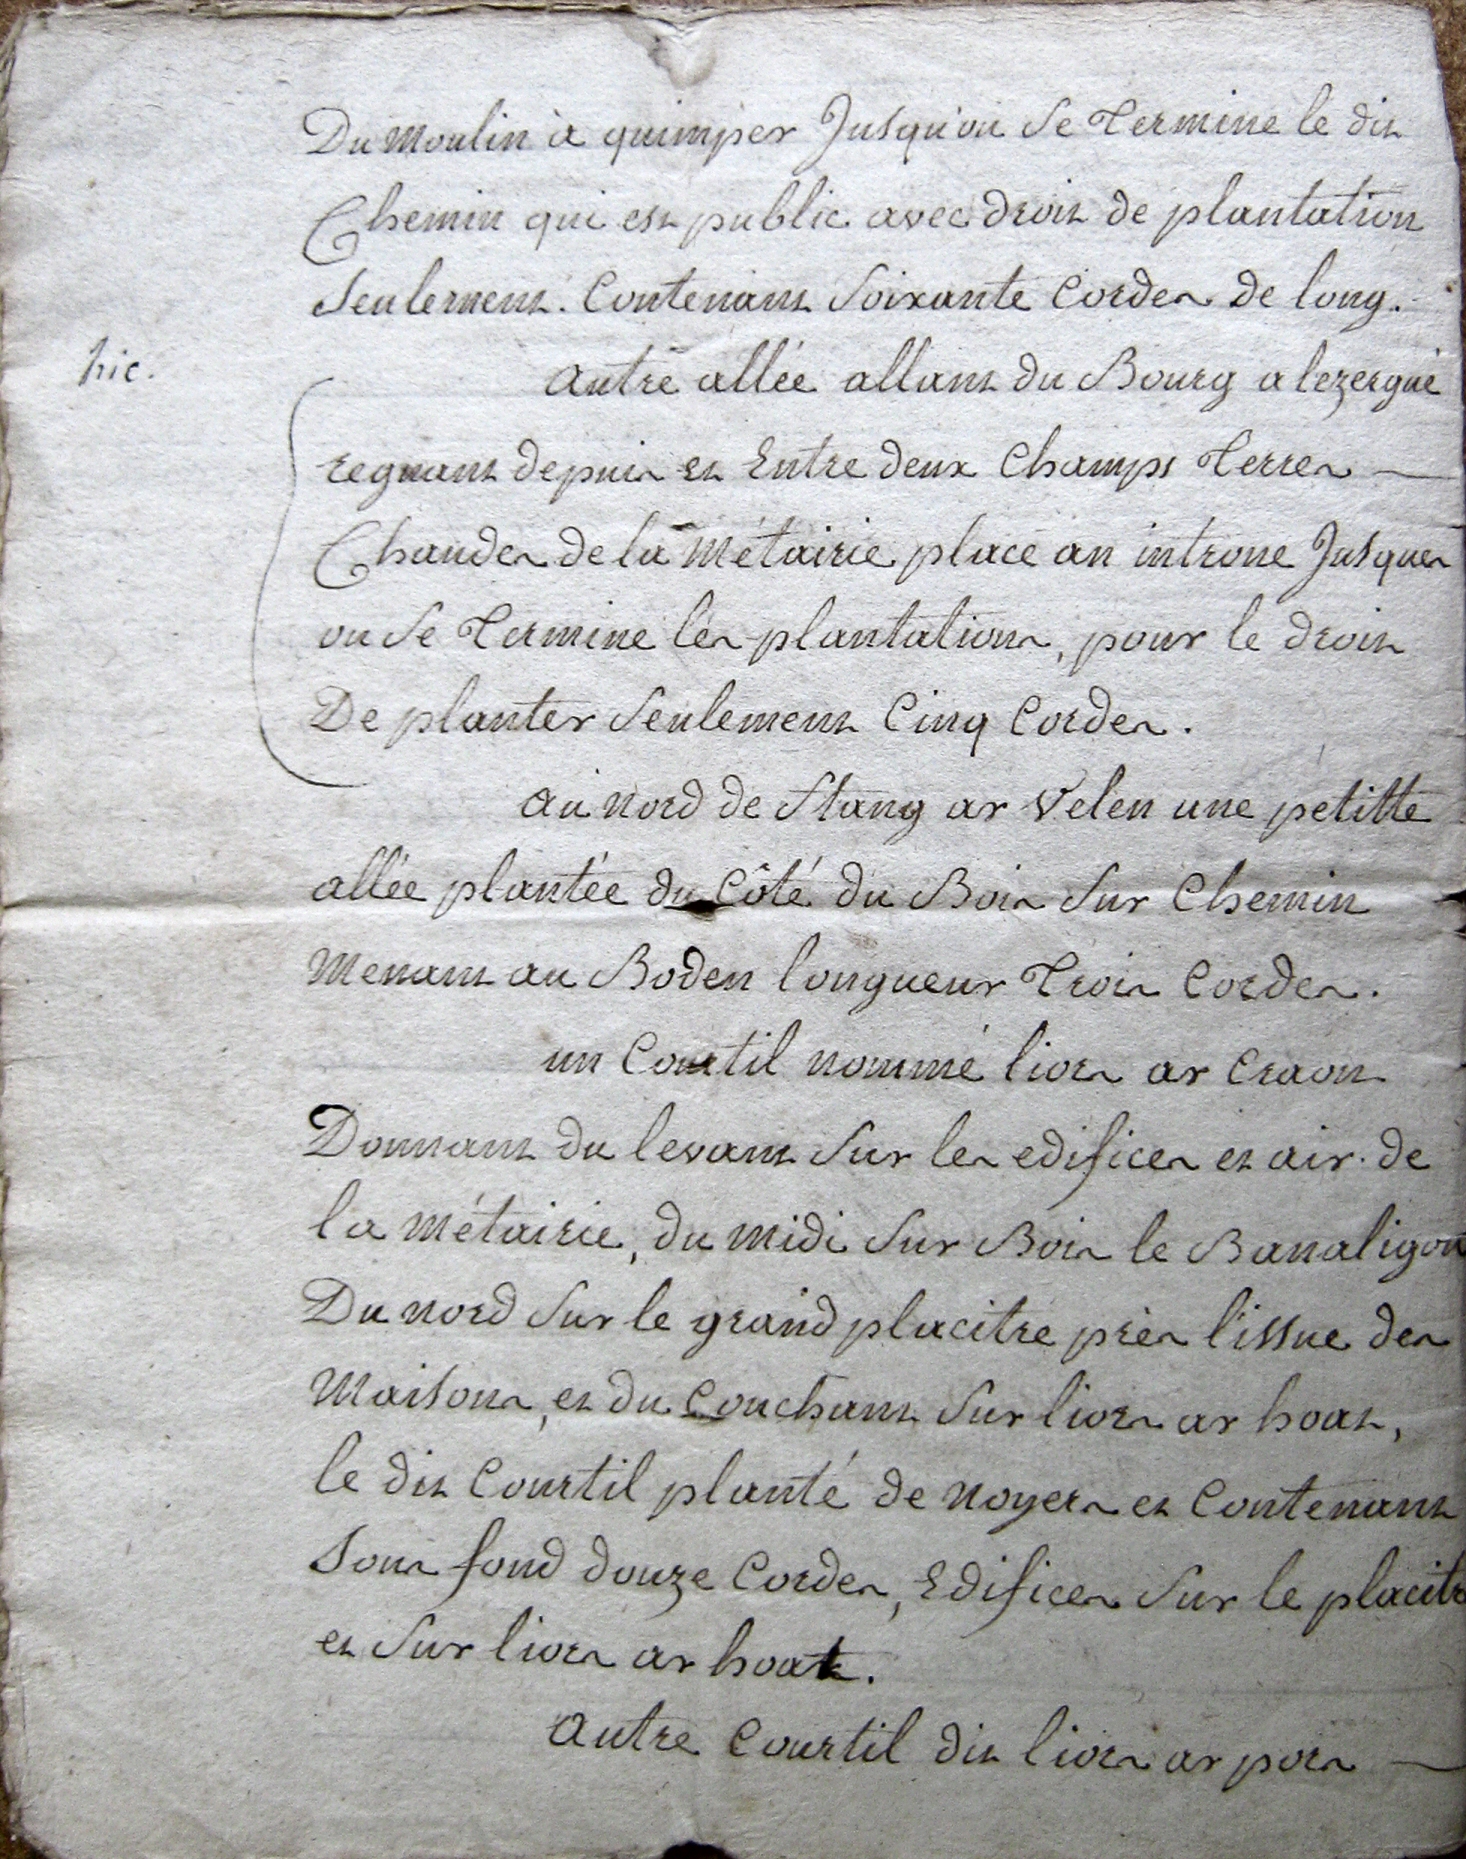 Du moulin à quimper Jusqu'ou se Termine le dit
Chemin qui est public avec droit de plantation
seulement. Contenant soixante Cordes de long.
hic.
autre allée allant du Bourg a lezergué
regnant depuis et Entre deux Champs Terres
Chaudes de la métairie place an introne Jusques
ou se Termine les plantations, pour le droit
De planter seulement Cinq Cordes.
au nord de Stang ar velen une petitte
allée plantée du Côté du Bois sur Chemin
menant au Boden longueur Trois Cordes.
un Courtil nommé liors ar Craon
Donnant du levant sur les edifices et air de
la métairie, du midi sur Bois le Banaligou
Du nord sur le grand placitre près l'issue des
maisons, et du Couchant sur liors ar hoat,
le dit Courtil planté de noyers et Contenant
sous fond douze Cordes, Edifices sur le placitre
et sur liors ar hoat.
autre Courtil dit liors ar pors